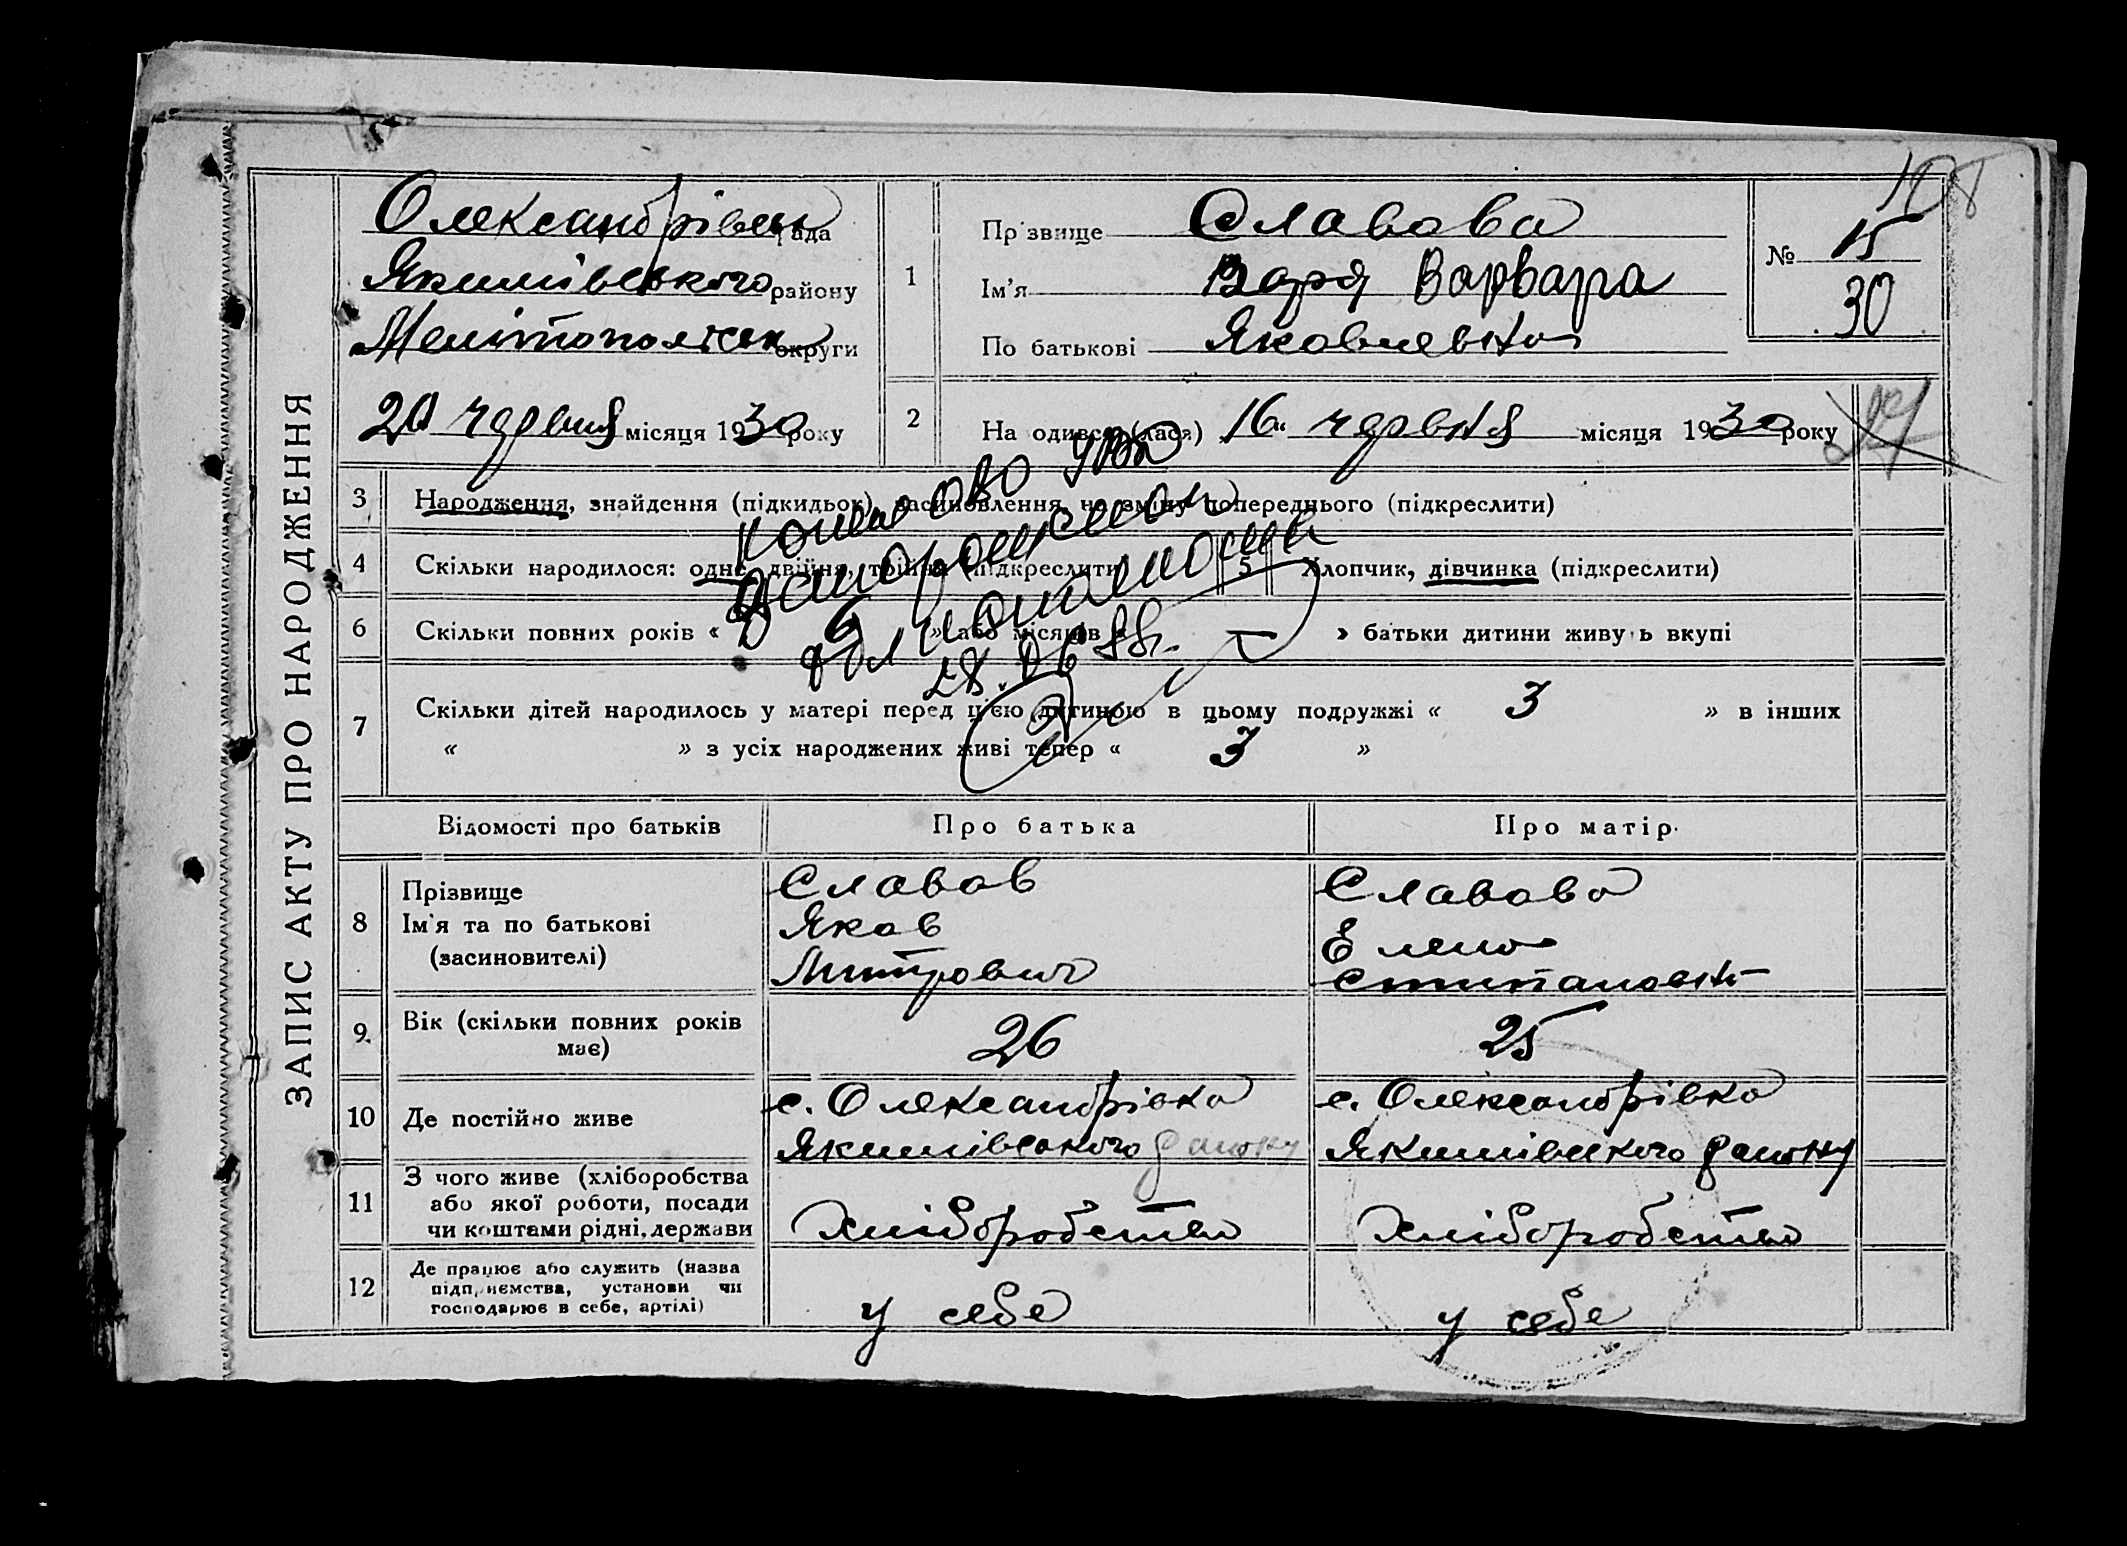 ЗАПИС АКТУ ПРО НАРОДЖЕННЯ
Олександрівськ рада
Якимівського району
Мелітопольськ округи
20 червня місяця 1930 року
1
Прізвище Славова
Ім'я Варя Варвара
По батькові Яковлевна
№ 15
30
108
2 На одився (лася) 16 червня місяця 1930 року
3 Народження, знайдення (підкидьок), засиновлення, на зміну попереднього (підкреслити)
4 Скільки народилося: одне, двійня, трійня (підкреслити) 5 Хлопчик, дівчинка (підкреслити)
6 Скільки повних років « 6 » або місяців « » батьки дитини живуть вкупі
7 Скільки дітей народилось у матері перед цією дитиною в цьому подружжі « 3 » в інших
« » з усіх народжених живі тепер « 3 »
28.06.88г.
Відомості про батьків Про батька Про матір
8 Прізвище Славов Славова
Ім'я та по батькові Яков Елена
(засиновителі) Митрович Стипановн
9. Вік (скільки повних років має) 26 25
10 Де постійно живе с. Олександрівка с. Олександрівка
Якимівського району Якимівського району
11 З чого живе (хліборобства
або якої роботи, посади
чи коштами рідні, держави Хліборобство Хліборобство
12 Де працює або служить (назва
підприємства, установи чи
господарює в себе, артілі) у себе у себе